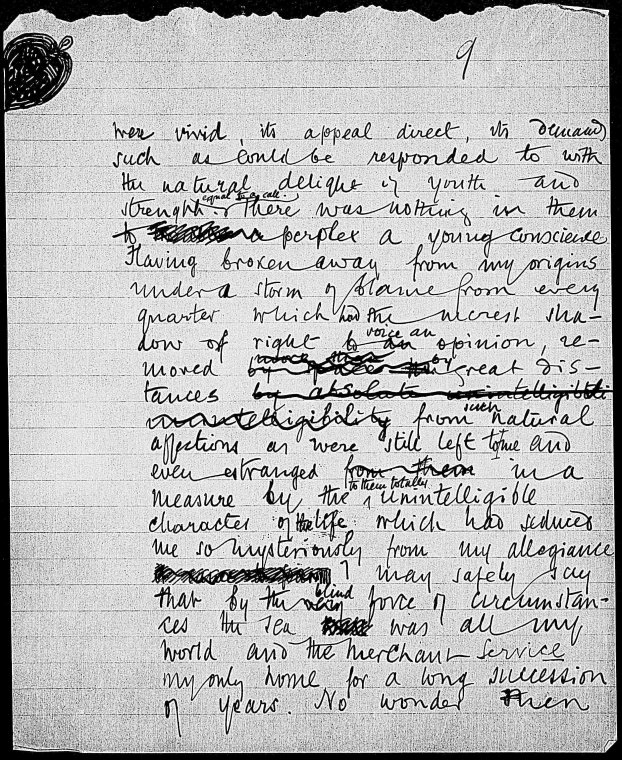 9
were vivid, its appeal direct, its demands
such as could be responded to with
the natural delight of youth and
equal to a call.
strength. There was nothing in them
to perplex a young conscience
Having broken away from my origins
under a storm of blame from every
quarter which had the merest sha-
voice an
dow of right to an opinion, re-
moved by great dis-
tances by absolute unintelligibili
unintelligibility from such natural
affections as were still left to me and
even estranged from them in a
to them totally
measure by the unintelligible
character of the life which had seduced
me so mysteriously from my allegiance
I may safely say
blind
that by the very force of circumstan-
ces the sea was all my
world and the merchant service
my only home for a long succession
of years. No wonder then